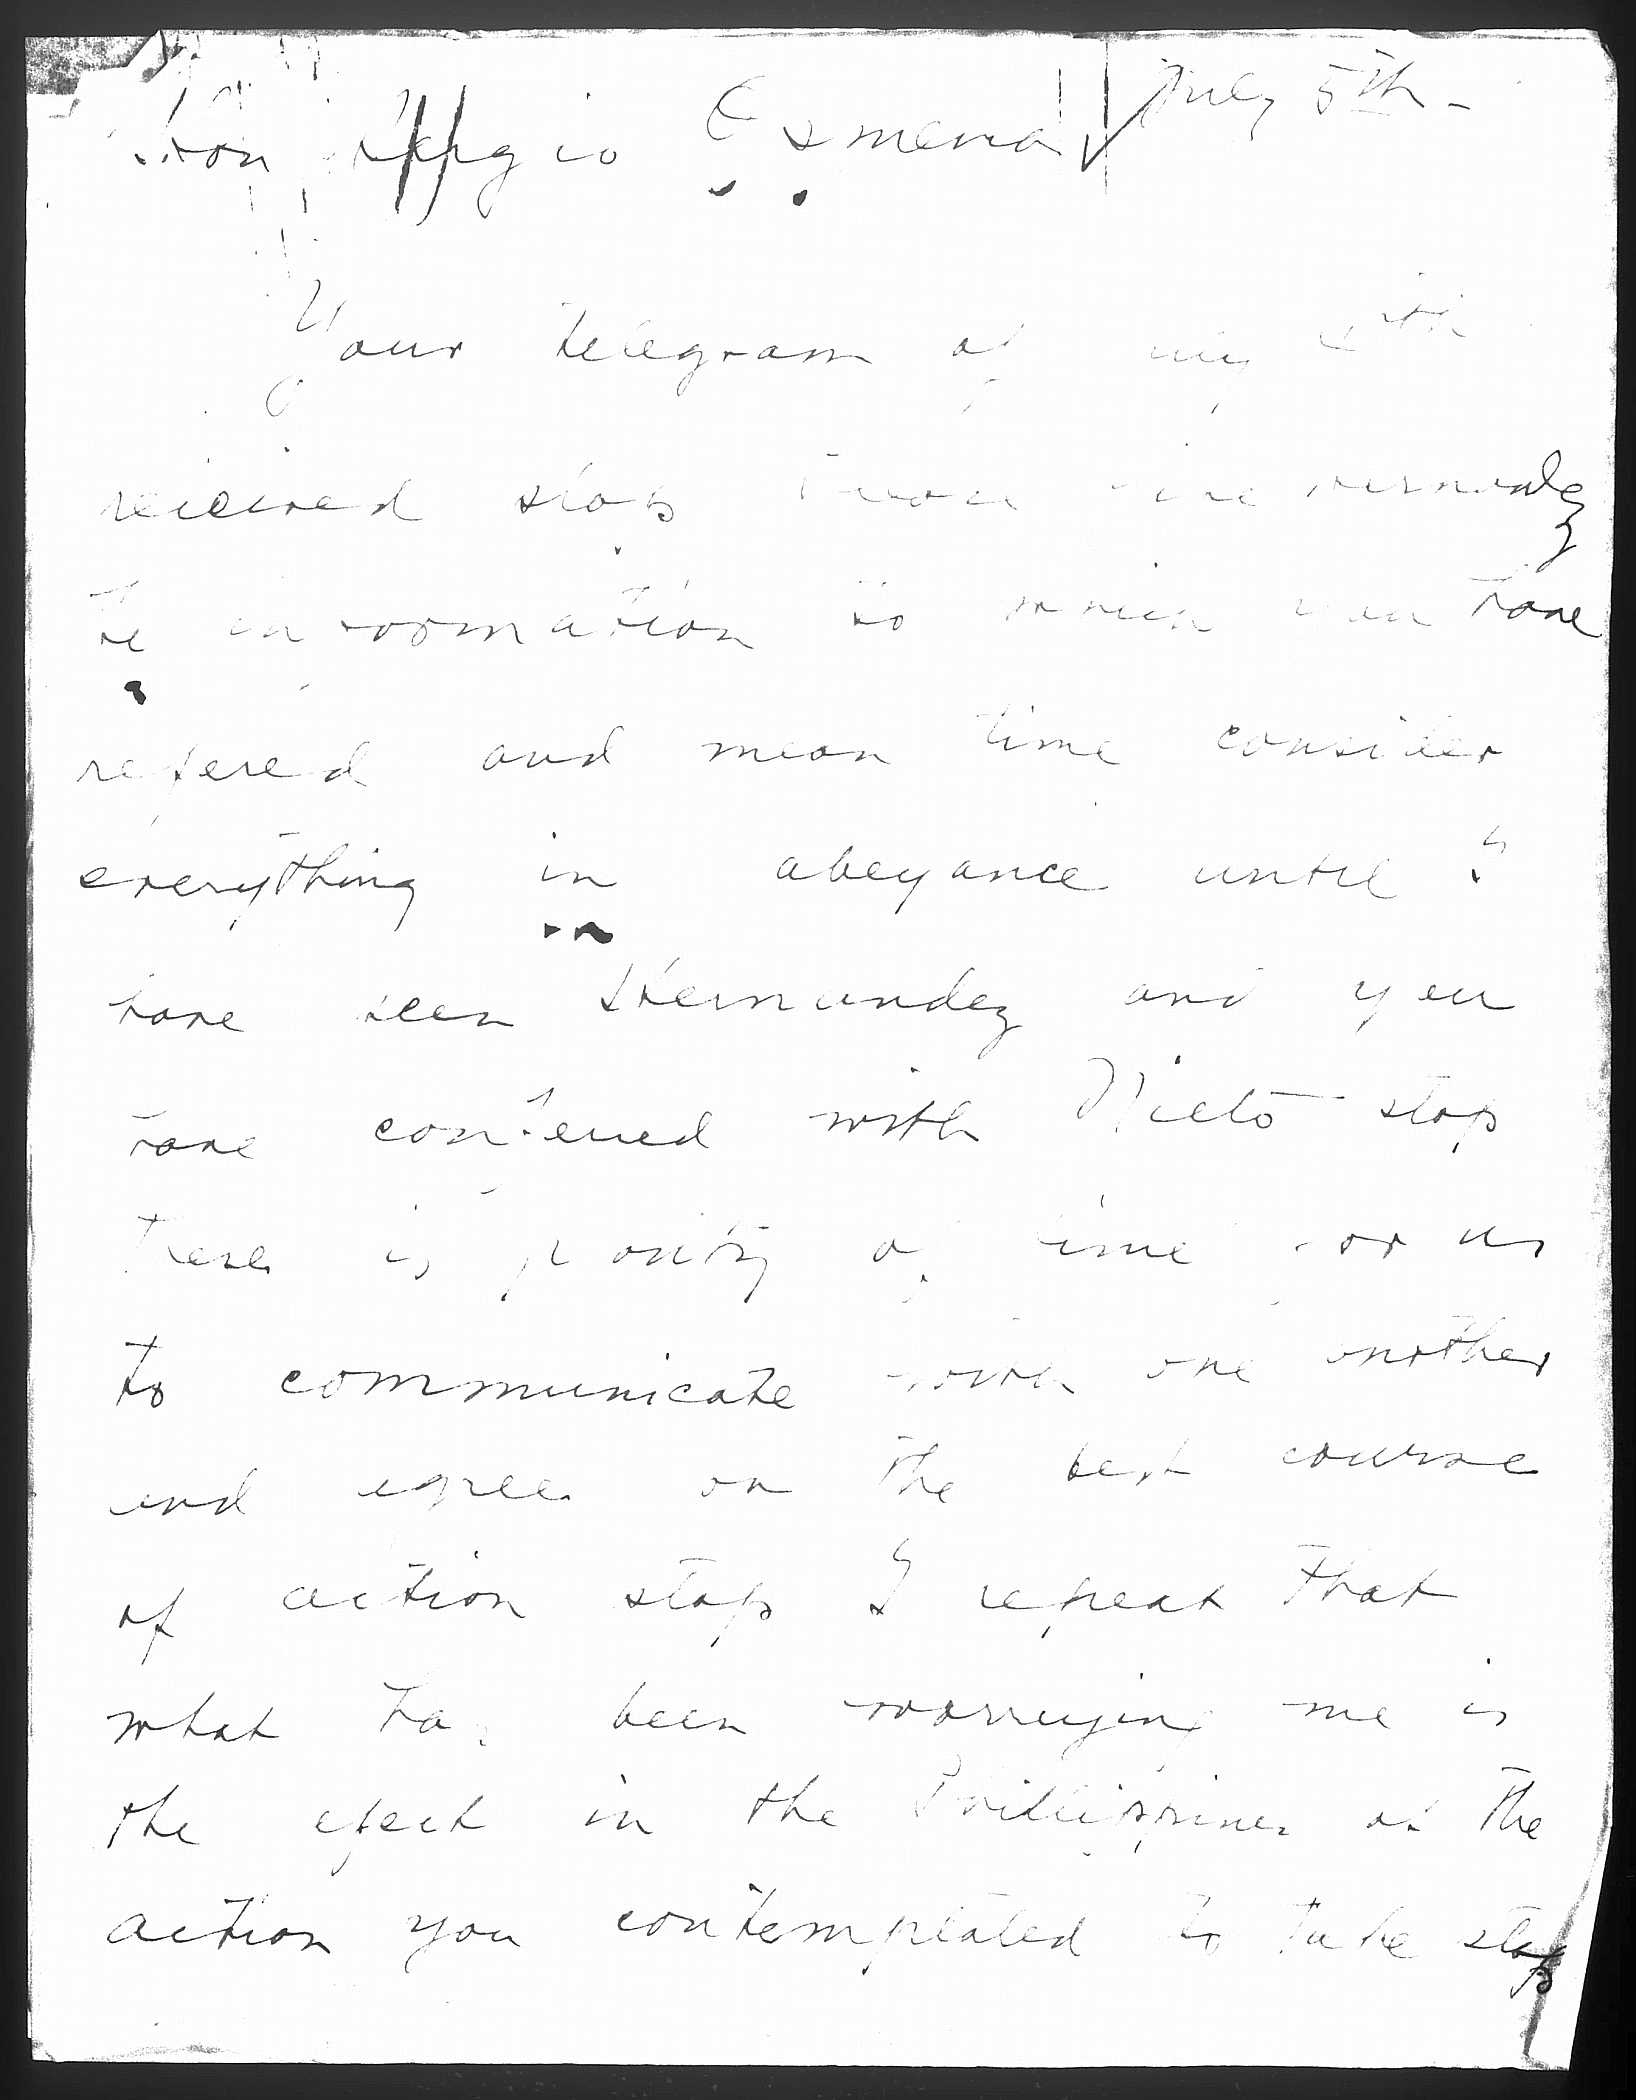 July 5th -
Hon Sergio Osmena
Your telegram of july 4th
received stop Hernandez
the information to which you have
refered and mean time consider
everything in abeyance until I
have seen Hernandez and you
have confered with Nieto stop
There is plenty of time for us
to communicate with one another
and agree on the best course
of action stop I repeat that
what has been worrying me is
the efect in the Phillippines of the
action you contemplated to take stop